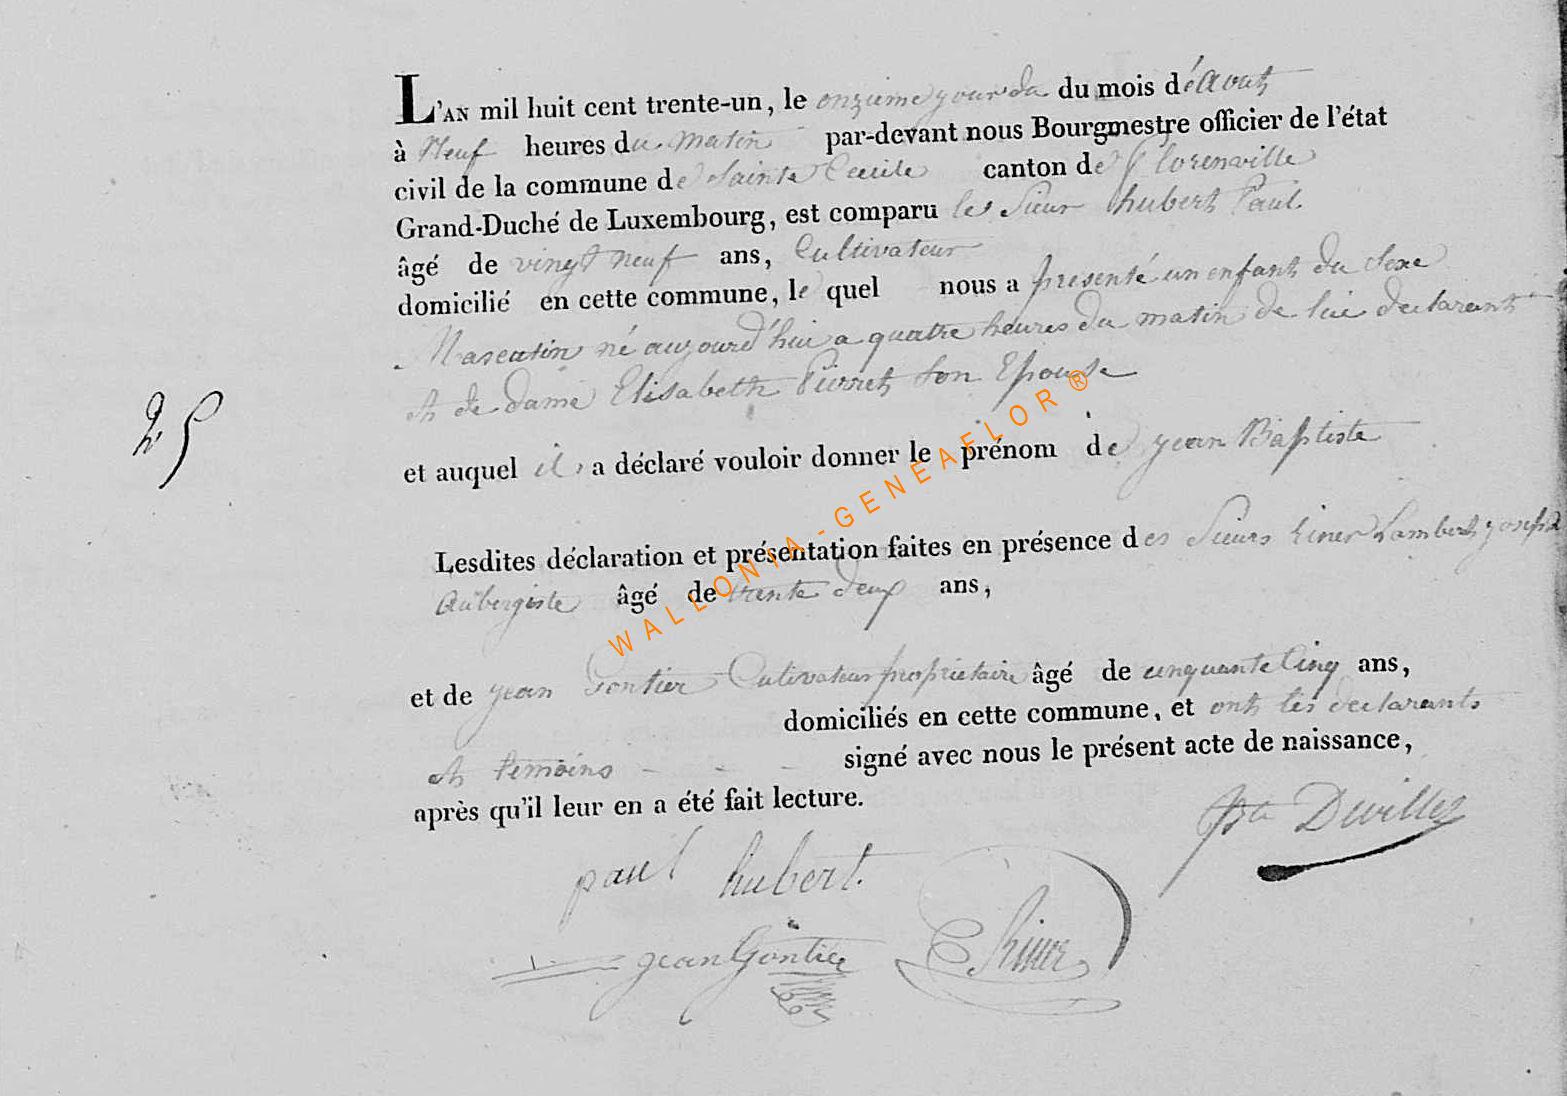 L'AN mil huit cent trente-un, le onzieme jour du du mois d'Aout
à Neuf heures du matin par-devant nous Bourgmestre officier de l'état
civil de la commune de Sainte Cecile canton de Florenville
Grand-Duché de Luxembourg, est comparu le Sieur hubert Paul
âgé de vingt neuf ans, Cultivateur
domicilié en cette commune, le quel nous a presenté un enfant du Sexe
Masculin né aujourd'hui a quatre heures du matin de lui declarant
et de dame Elisabeth Pierret Son Epouse
25
et auquel il a déclaré vouloir donner le prénom de jean Baptiste
Lesdites déclaration et présentation faites en présence des Sieurs Lambert joseph
Aubergiste âgé de trente deux ans,
et de jean Gontier Cultivateur proprietaire âgé de cinquante Cinq ans,
domiciliés en cette commune, et ont les declarants
et temoins - - - signé avec nous le présent acte de naissance,
après qu'il leur en a été fait lecture.
Devillez
paul hubert.
jean Gontier
WALLONIA-GENEAFLOR®